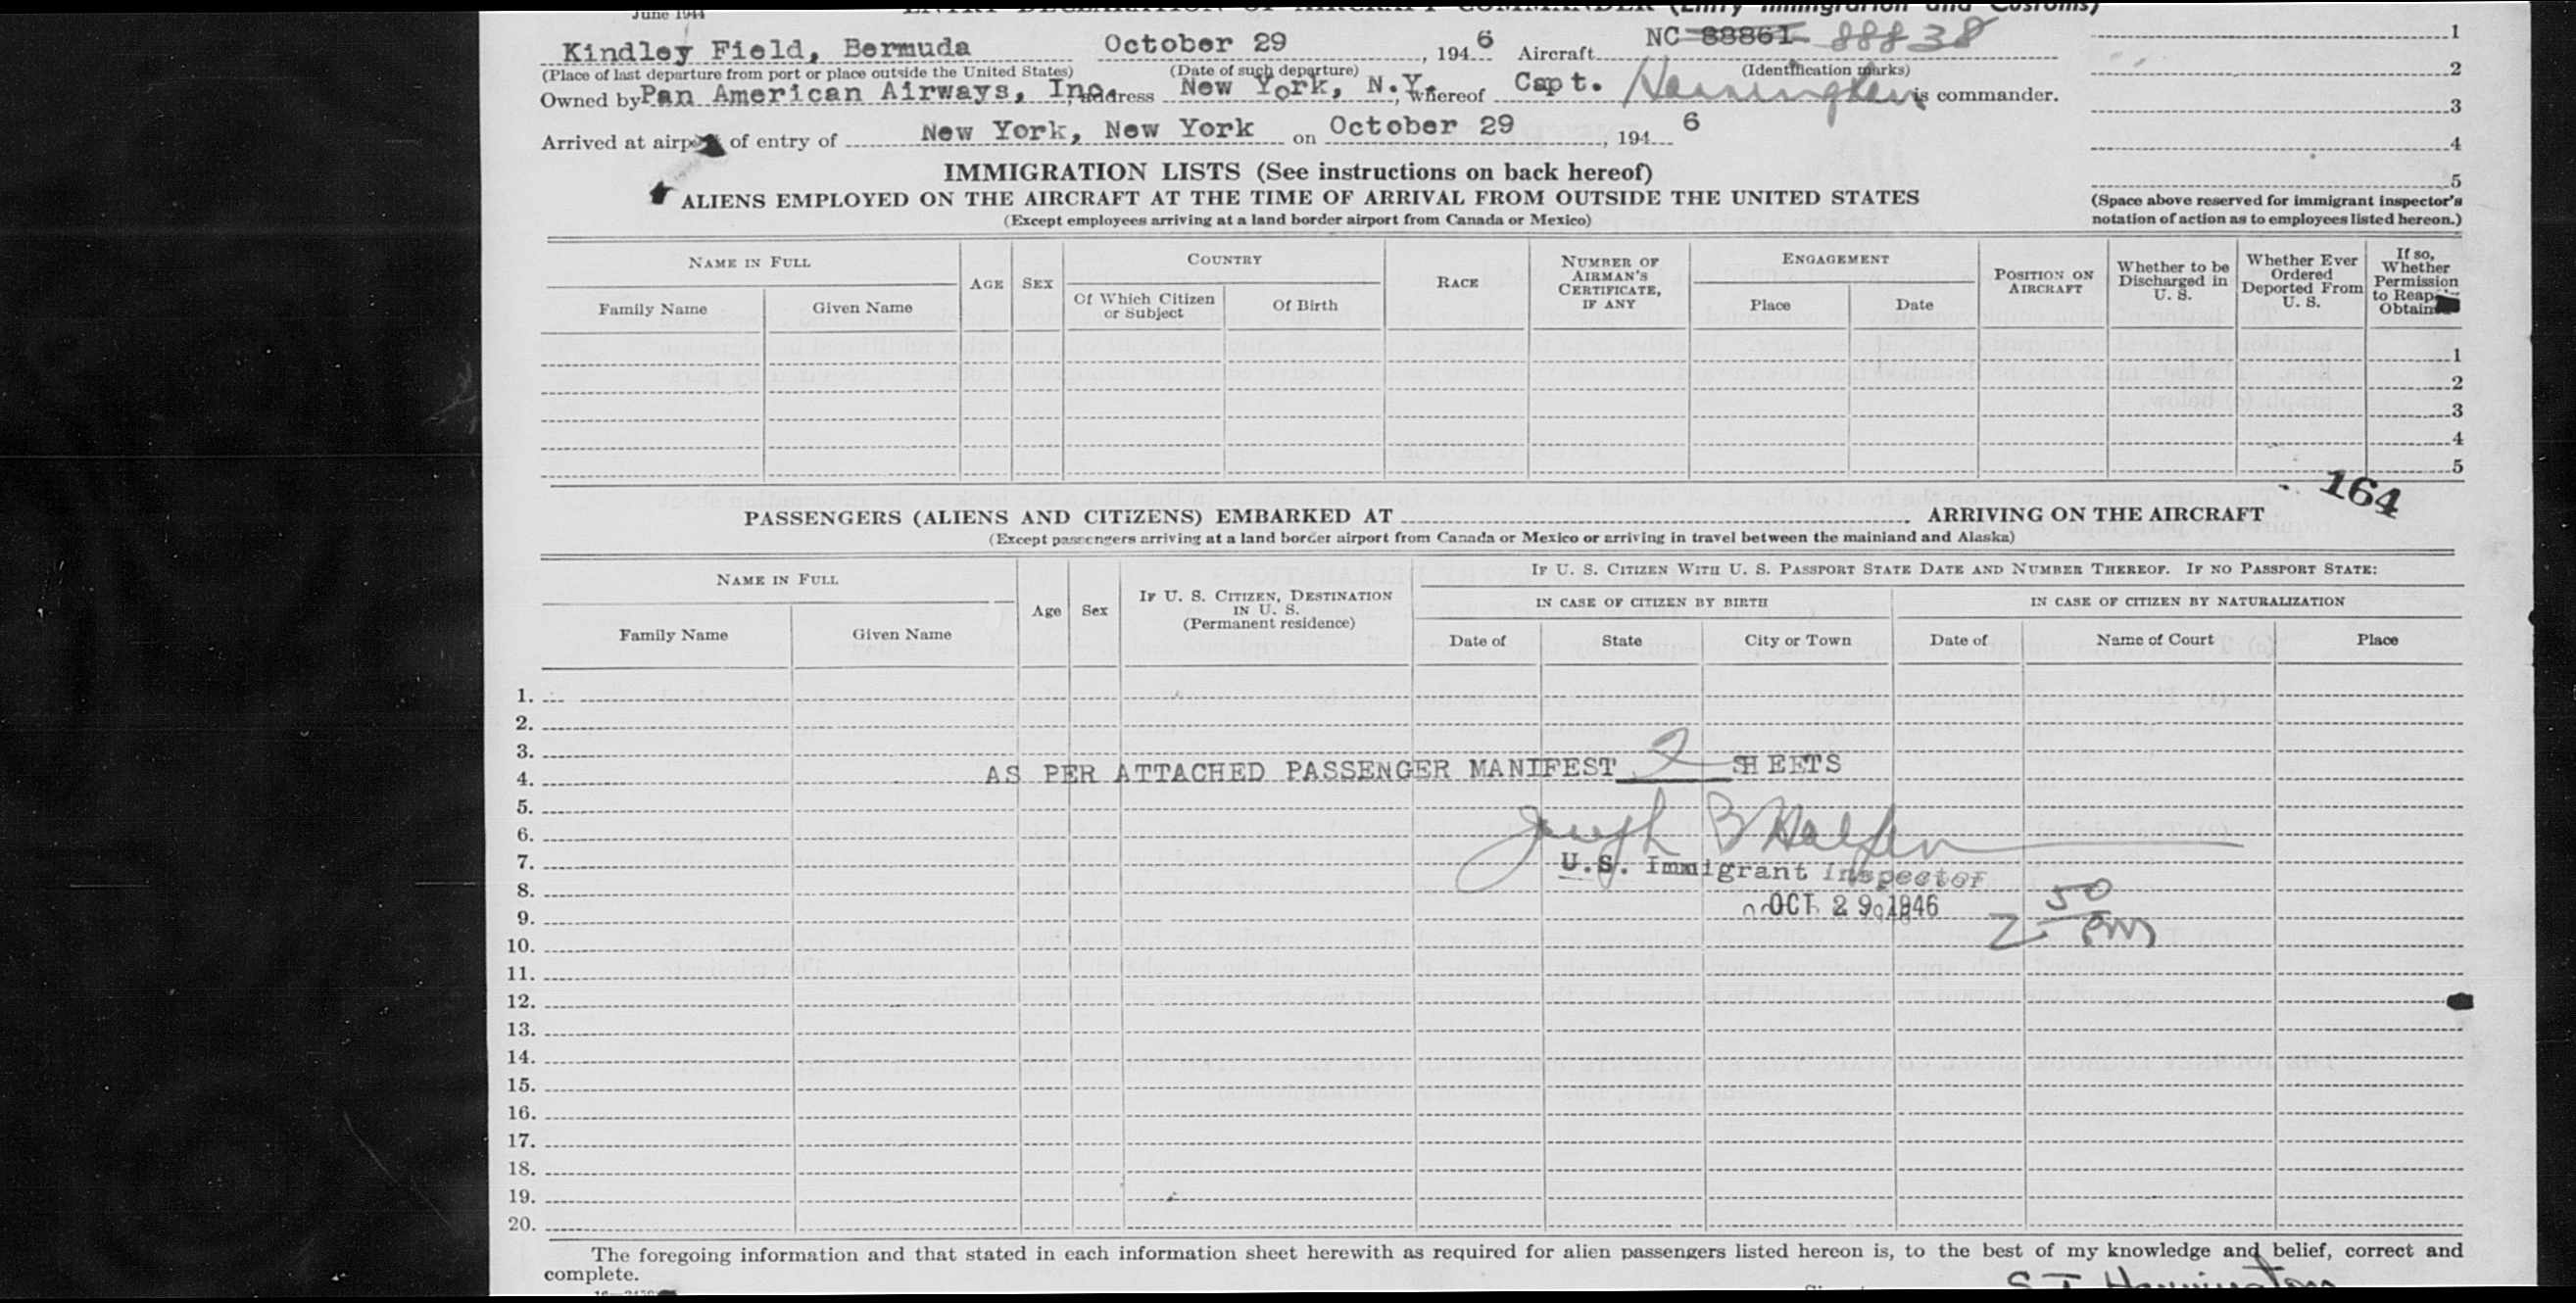 June 1944
ENTRY DECLARATION OF AIRCRAFT COMMANDER (Entry Immigration and Customs)
Kindley Field, Bermuda October 29, 1946 Aircraft NC 88861 88838
(Place of last departure from port or place outside the United States) (Date of such departure) (Identification marks)
Owned by Pan American Airways, Inc. address New York, N.Y. whereof Capt. is commander.
Arrived at airport of entry of New York, New York on October 29, 1946
1
2
3
4
5
(Space above reserved for immigrant inspector's
notation of action as to employees listed hereon.)
IMMIGRATION LISTS (See instructions on back hereof)
ALIENS EMPLOYED ON THE AIRCRAFT AT THE TIME OF ARRIVAL FROM OUTSIDE THE UNITED STATES
(Except employees arriving at a land border airport from Canada or Mexico)
NAME IN FULL
Family Name
Given Name
AGE
SEX
COUNTRY
Of Which Citizen
or Subject
Of Birth
RACE
NUMBER OF
AIRMAN'S
CERTIFICATE,
IF ANY
ENGAGEMENT
Place
Date
POSITION ON
AIRCRAFT
Whether to be
Discharged in
U. S.
Whether Ever
Ordered
Deported From
U. S.
If so,
Whether
Permission
to Reap
Obtain
1
2
3
4
5
164
PASSENGERS (ALIENS AND CITIZENS) EMBARKED AT ARRIVING ON THE AIRCRAFT
(Except passengers arriving at a land border airport from Canada or Mexico or arriving in travel between the mainland and Alaska)
NAME IN FULL
Family Name
Given Name
Age
Sex
IF U. S. CITIZEN, DESTINATION
IN U. S.
(Permanent residence)
IF U. S. CITIZEN WITH U. S. PASSPORT STATE DATE AND NUMBER THEREOF. IF NO PASSPORT STATE:
IN CASE OF CITIZEN BY BIRTH
IN CASE OF CITIZEN BY NATURALIZATION
Date of
State
City or Town
Date of
Name of Court
Place
1.
2.
3.
4. AS PER ATTACHED PASSENGER MANIFEST 2 SHEETS
5.
6. Joseph B Halpern
7. U.S. Immigrant Inspector
8.
9. OCT 29 1946 2 50 PM
10.
11.
12.
13.
14.
15.
16.
17.
18.
19.
20.
The foregoing information and that stated in each information sheet herewith as required for alien passengers listed hereon is, to the best of my knowledge and belief, correct and
complete.